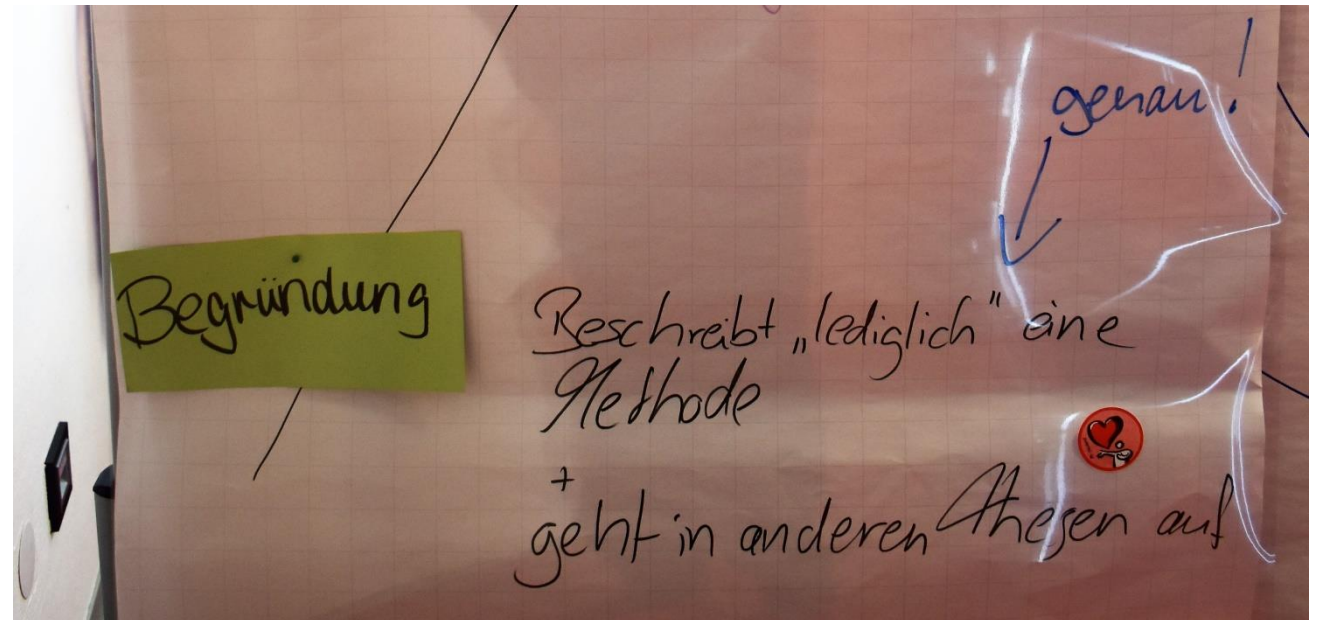 genau!
Begründung
Beschreibt „lediglich" eine
Methode
+
geht in anderen Thesen auf